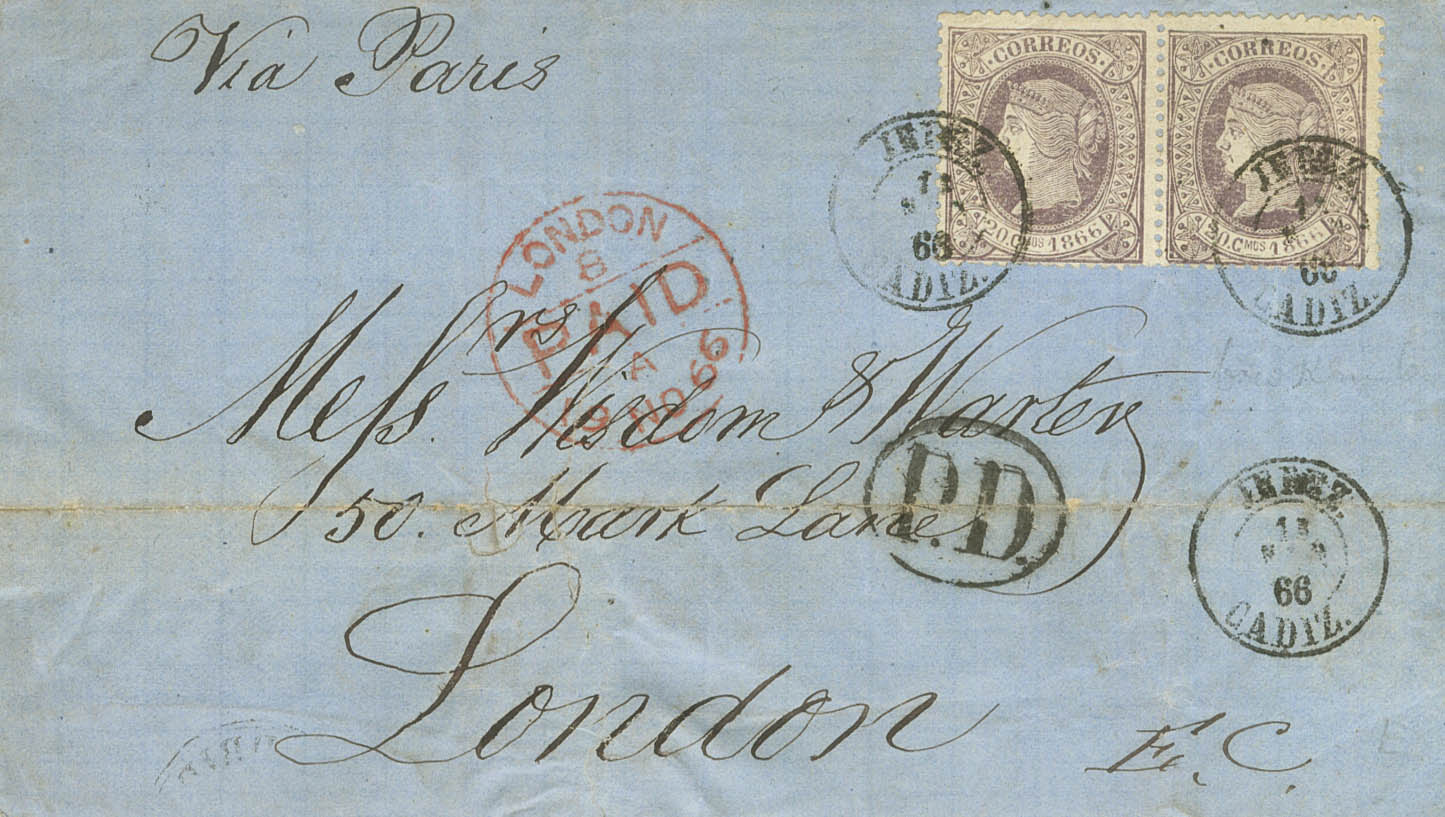 Via Paris
CORREOS
20. CMOS 1866
CORREOS
20. CMOS 1866
JEREZ
66
CADIZ.
JEREZ
66
CADIZ.
LONDON
8
PAID
A
19 NO 66
Messrs. Wisdom & Warter
50. Mark Lane
P.D.
JEREZ
13
66
CADIZ.
London
E.C.